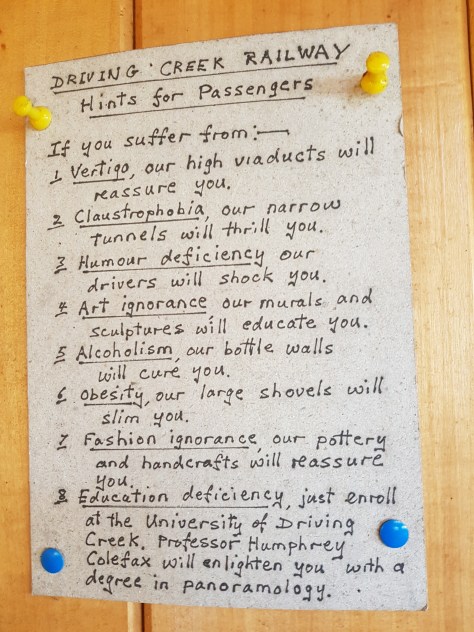 DRIVING CREEK RAILWAY
Hints for Passengers
If you suffer from:—
1 Vertigo, our high viaducts will
reassure you.
2 Claustrophobia, our narrow
tunnels will thrill you.
3 Humour deficiency our
drivers will shock you.
4 Art ignorance our murals and
sculptures will educate you.
5 Alcoholism, our bottle walls
will cure you.
6 Obesity, our large shovels will
slim you.
7 Fashion ignorance, our pottery
and handcrafts will reassure
you.
8 Education deficiency, just enroll
at the University of Driving
Creek. Professor Humphrey
Colefax will enlighten you with a
degree in panoramology.